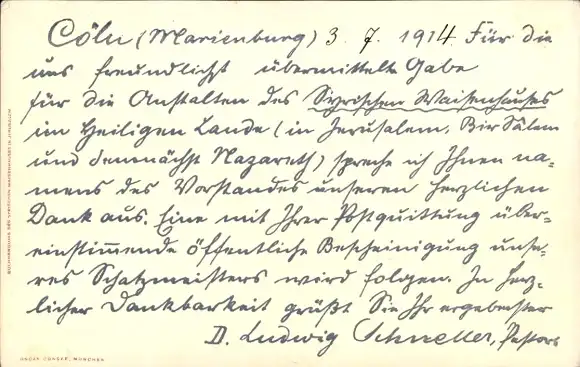 Cöln (Marienburg) 3. 7. 1914. Für die
uns freundlichst übermittelte Gabe
für die Anstalten des Syrischen Waisenhauses
im Heiligen Lande (in Jerusalem, Bir Sâlem
und demnächst Nazareth) spreche ich Ihnen na=
mens des Vorstandes unseren herzlichen
Dank aus. Eine mit Ihrer Postquittung über=
einstimmende öffentliche Bescheinigung unse=
res Schatzmeisters wird folgen. In herz=
licher Dankbarkeit grüßt Sie Ihr ergebenster
D. Ludwig Schneller, Pastor
OSCAR CONSÉE, MÜNCHEN